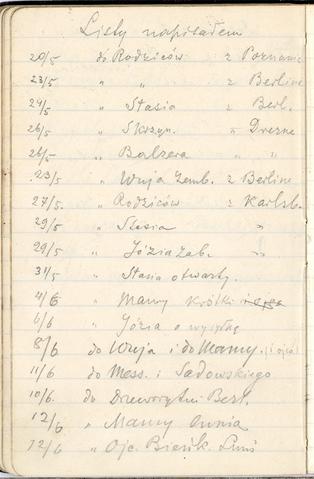 Listy napisałem
20/5 do Rodziców z Poznania
23/5 " " z Berlina
24/5 " Stasia " Berl.
26/5 " Skrzyn. " Drezna
26/5 " Balzera " "
23/5 " Wuja Zemb. z Berlina
27/5 " Rodziców z Karlsb.
29/5 " Stasia "
29/5 " Józia Zab. "
31/5 " Stasia otwarty.
4/6 " Mamy krótki
6/6 " Józia o wysyłkę
8/6 do Wuja i do Mamy. (i ojca)
11/6 do Mess. i Sadowskiego
10/6. do Berl.
12/6 " Mamy
12/6 " Ojc. Bieńk.